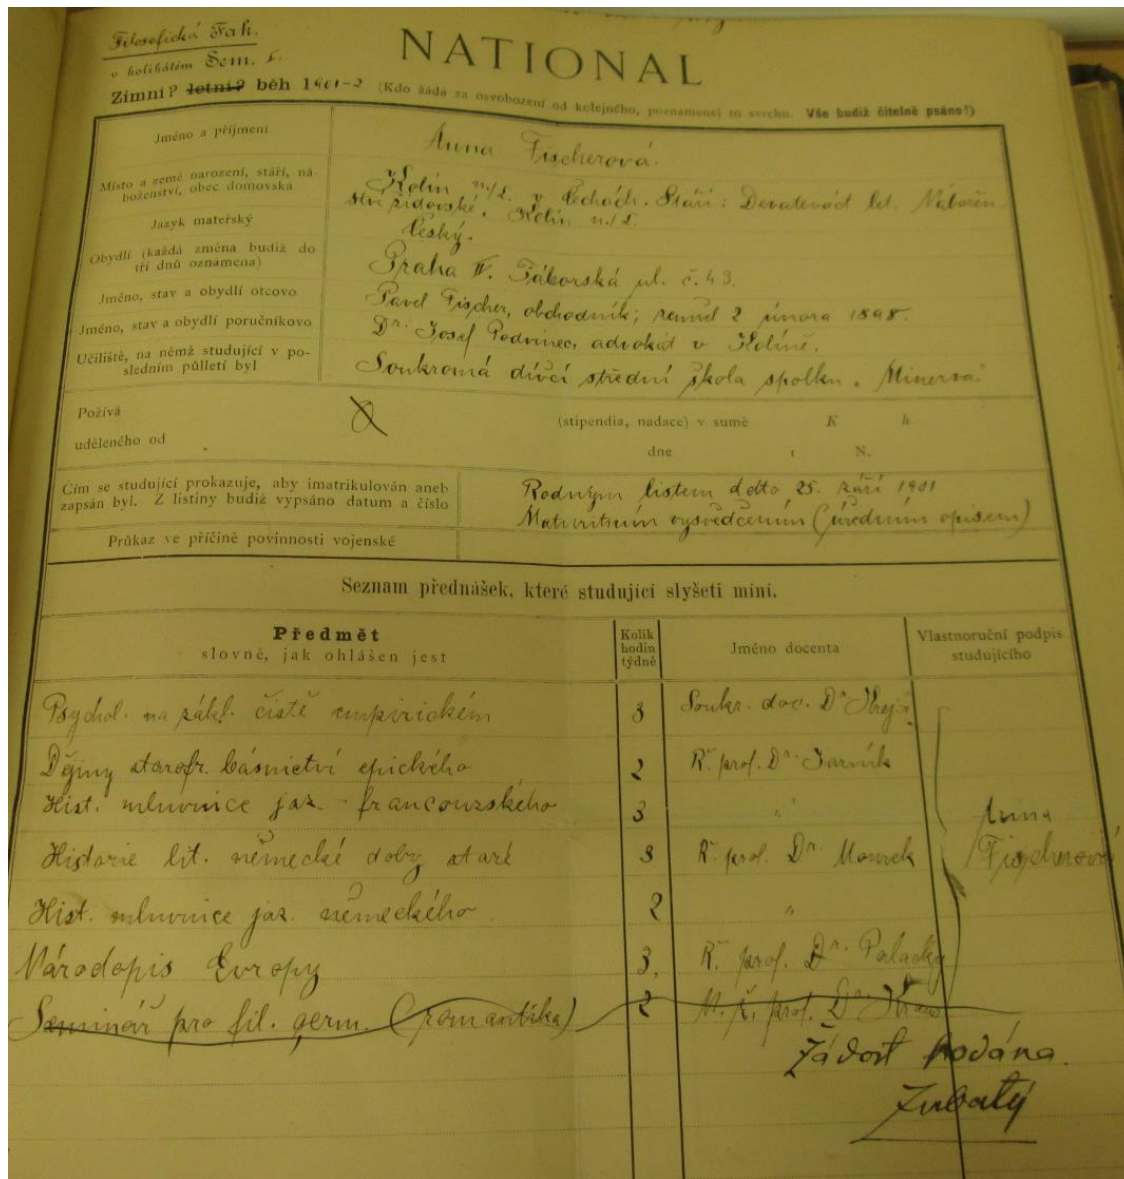 Filosofická Fak.
v kolikátém Sem. I.
NATIONAL
Zimní? letní? běh 1901-2 (Kdo žádá za osvobození od kolejného, poznamenej to svrchu. Vše budiž čitelně psáno!)
Jméno a příjmení Anna Fischerová.
Místo a země narození, stáří, ná-
boženství, obec domovská
Kolín n./L. v Čechách. Stáří: Devatenáct let. Nábožen-
ství židovské. Kolín n./L.
Jazyk mateřský Český.
Obydlí (každá změna budiž do
tří dnů oznámena)
Praha II. Táborská ul. č. 43.
Jméno, stav a obydlí otcovo Pavel Fischer, obchodník; zemřel 2 února 1898.
Jméno, stav a obydlí poručníkovo Dr. Josef Podvinec, advokát v Kolíně.
Učiliště, na němž studující v po-
sledním půlletí byl
Soukromá dívčí střední škola spolku „Minerva"
Požívá
uděleného od
(stipendia, nadace) v sumě K h
dne 1 N.
Čím se studující prokazuje, aby imatrikulován aneb
zapsán byl. Z listiny budiž vypsáno datum a číslo
Rodným listem detto 25. září 1901
Maturitním vysvědčením (úředním opisem)
Průkaz ve příčině povinnosti vojenské
Seznam přednášek, které studující slyšeti míní.
Předmět
slovně, jak ohlášen jest
Kolik
hodin
týdně
Jméno docenta
Vlastnoruční podpis
studujícího
Psychol. na zákl. čistě empirickém 3 Soukr. doc. Dr Krejčí
Dějiny starofr. básnictví epického 2 Ř. prof. Dr. Jarník
Hist. mluvnice jaz. francouzského 3 "
Anna
Historie lit. německé doby staré 3 Ř. prof. Dr. Mourek
Fischerová
Hist. mluvnice jaz. německého 2 "
Národopis Evropy 3. Ř. prof. Dr. Palacký
Seminář pro fil. germ. (romantika) 2 M. ř. prof. Dr Kraus
Žádost podána.
Zubatý